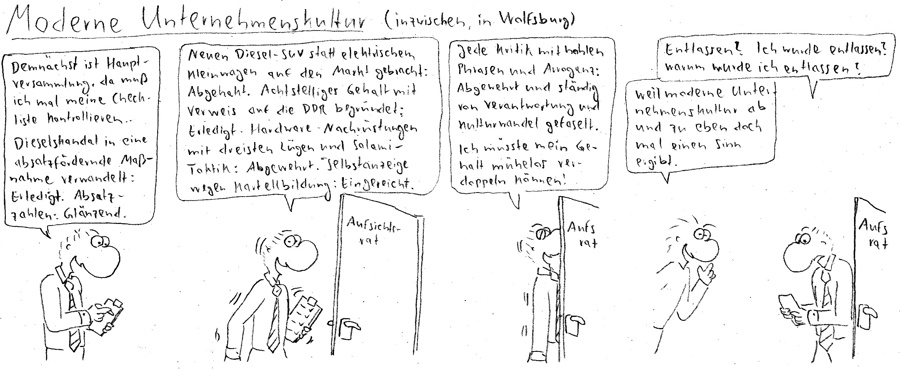 Moderne Unternehmenskultur (inzwischen, in Wolfsburg)
Demnächst ist Haupt-
versammlung, da muß
ich mal meine Check-
liste kontrollieren..
Dieselskandal in eine
absatzfördernde Maß-
nahme verwandelt:
Erledigt. Absatz-
zahlen: Glänzend.
Neuen Diesel-SUV statt elektrischem
Kleinwagen auf den Markt gebracht:
Abgehakt. Achtstelliges Gehalt mit
Verweis auf die DDR begründet:
Erledigt. Hardware-Nachrüstungen
mit dreisten Lügen und Salami-
Taktik: Abgewehrt. Selbstanzeige
wegen Kartellbildung: Eingereicht.
Aufsichts-
rat
Jede Kritik mit hohlen
Phrasen und Arroganz:
Abgewehrt und ständig
von Verantwortung und
Kulturwandel gefaselt.
Ich müsste mein Ge-
halt mühelos ver-
doppeln können!
Aufs
rat
Entlassen? Ich wurde entlassen?
Warum wurde ich entlassen?
Weil moderne Unter
nehmenskultur ab
und zu eben doch
mal einen Sinn
ergibt.
Aufs
rat